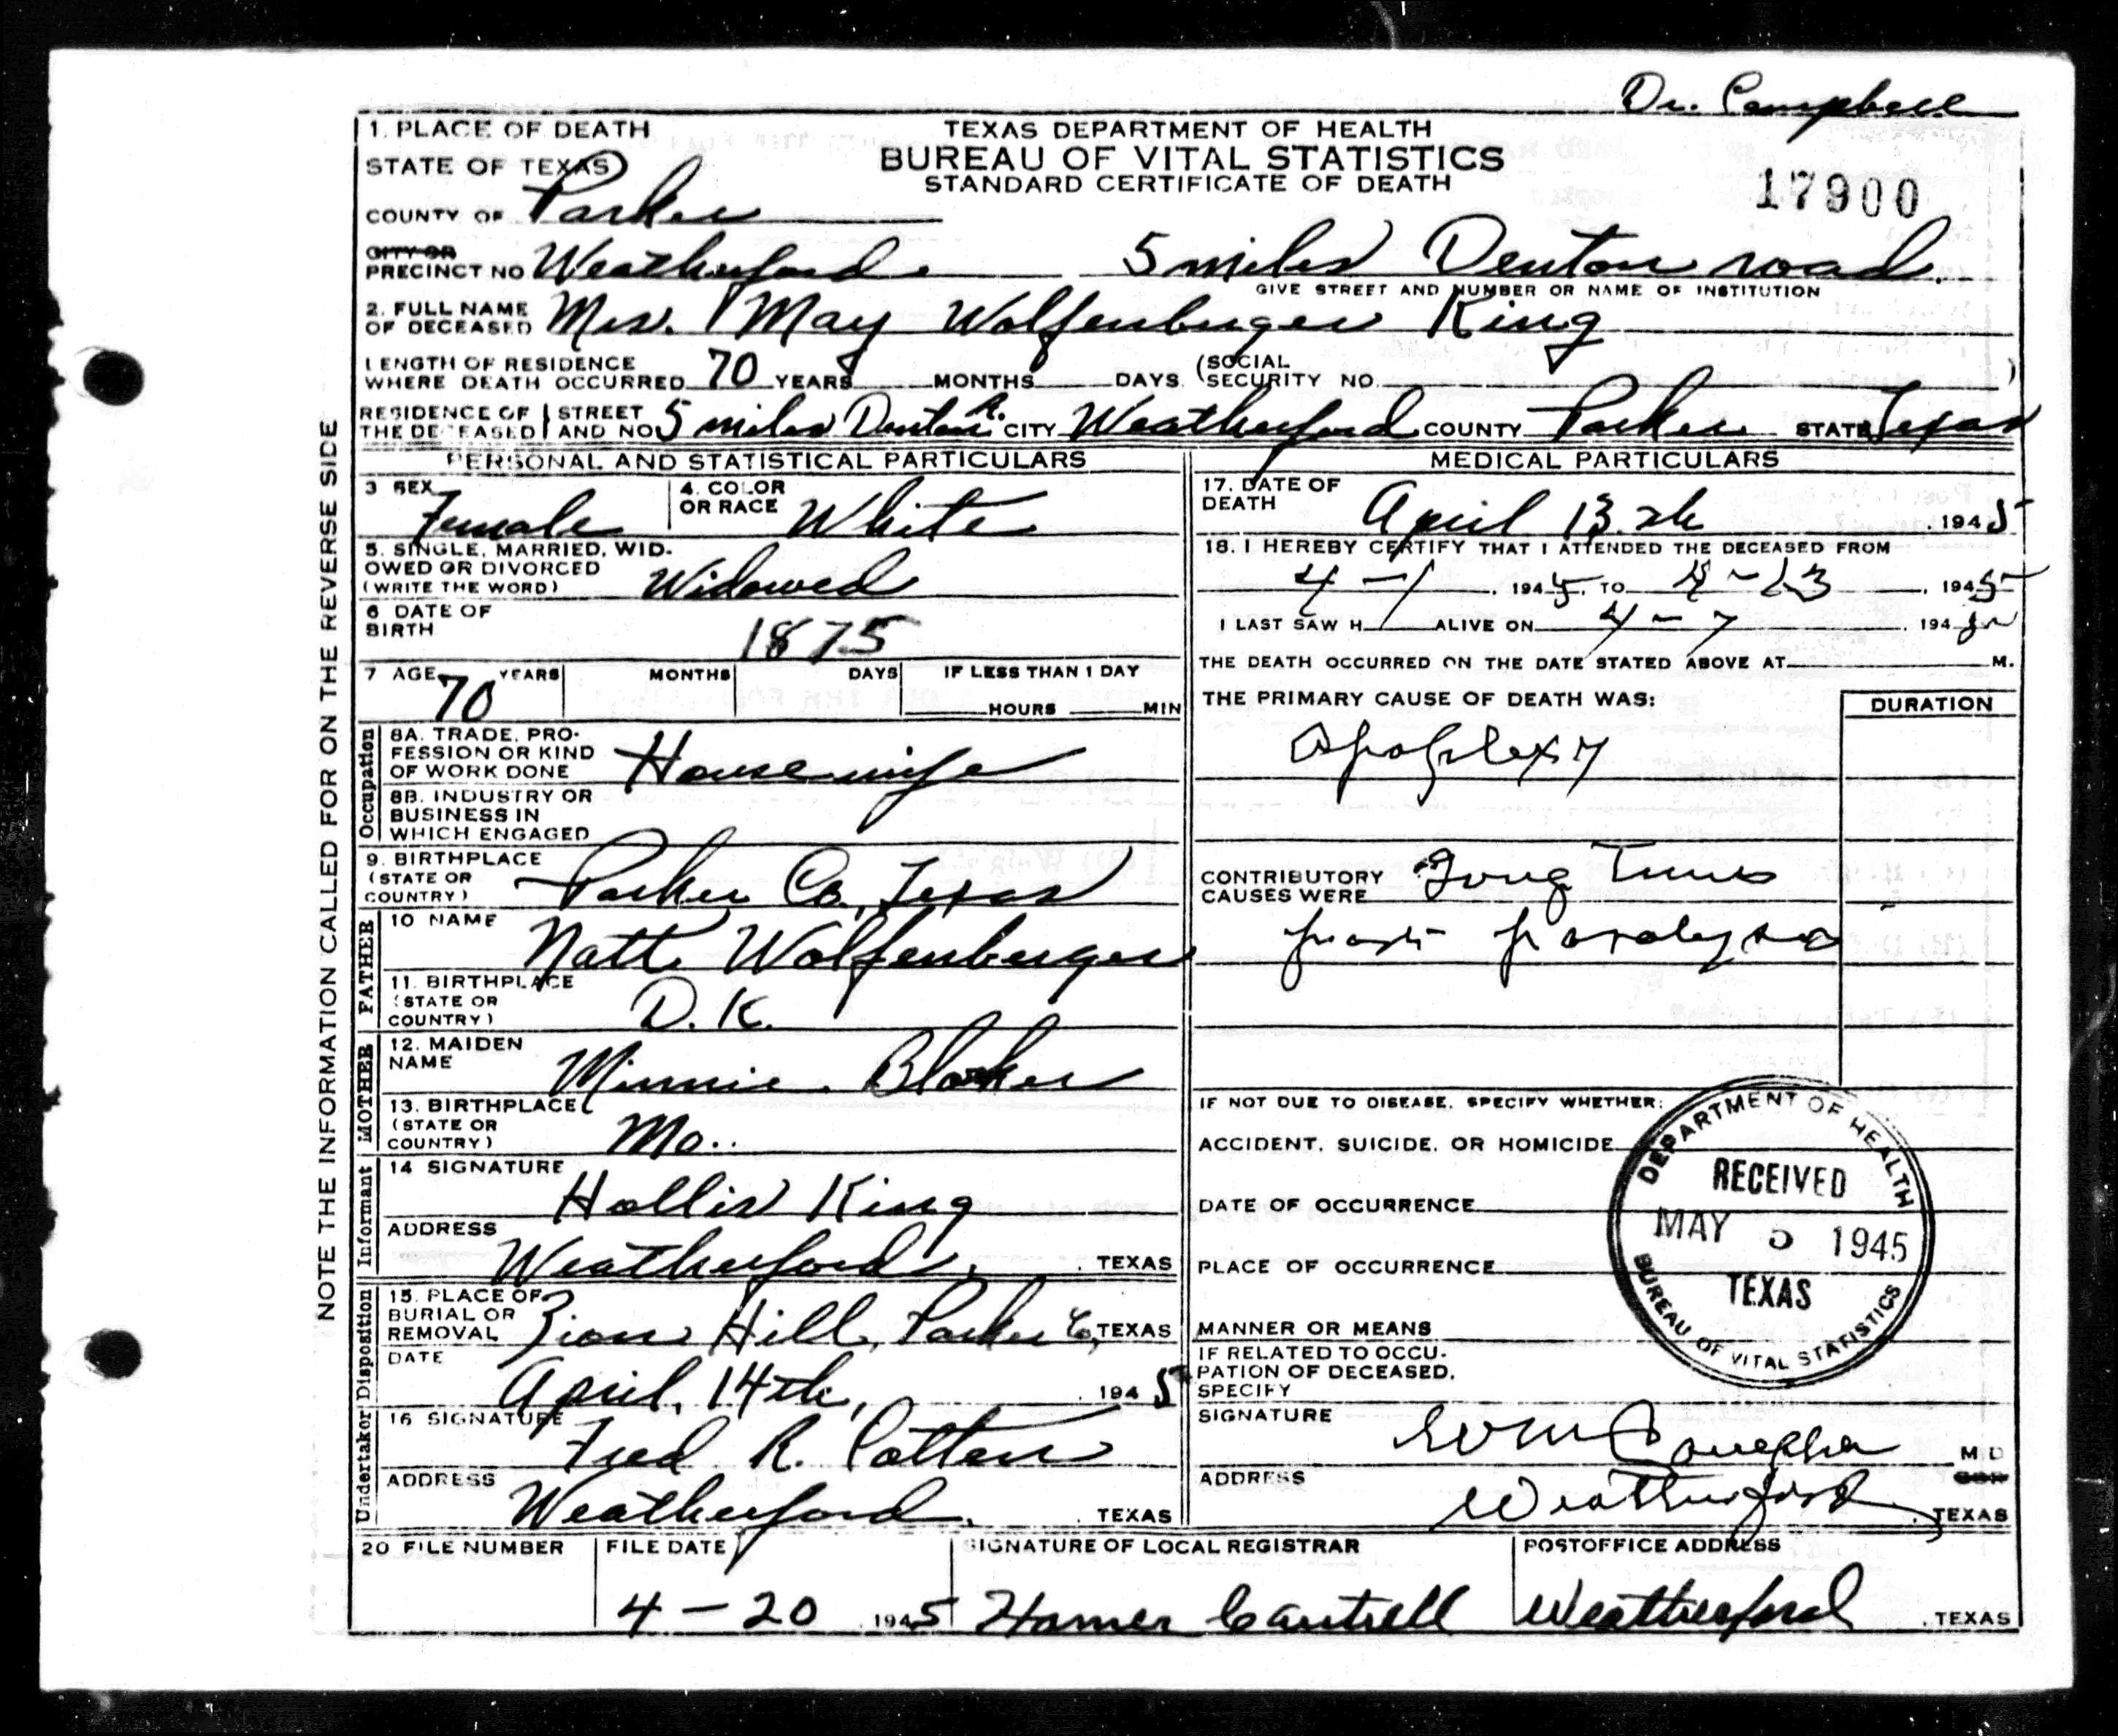 Dr. Campbell
1. PLACE OF DEATH
TEXAS DEPARTMENT OF HEALTH
STATE OF TEXAS
BUREAU OF VITAL STATISTICS
STANDARD CERTIFICATE OF DEATH
17900
COUNTY OF Parker
CITY OR
PRECINCT NO Weatherford 5 miles Denton road
GIVE STREET AND NUMBER OR NAME OF INSTITUTION
2. FULL NAME
OF DECEASED Mrs. May Wolfenburger King
LENGTH OF RESIDENCE
WHERE DEATH OCCURRED 70 YEARS MONTHS DAYS (SOCIAL SECURITY NO. )
RESIDENCE OF THE DECEASED STREET AND NO 5 miles Denton R. CITY Weatherford COUNTY Parker STATE Texas
PERSONAL AND STATISTICAL PARTICULARS
3 SEX Female
4. COLOR OR RACE White
5. SINGLE, MARRIED, WID-
OWED OR DIVORCED
(WRITE THE WORD) Widowed
6 DATE OF
BIRTH 1875
7 AGE 70 YEARS MONTHS DAYS IF LESS THAN 1 DAY
HOURS MIN
Occupation
8A. TRADE, PRO-
FESSION OR KIND
OF WORK DONE Housewife
8B. INDUSTRY OR
BUSINESS IN
WHICH ENGAGED
9. BIRTHPLACE
(STATE OR
COUNTRY) Parker Co., Texas
FATHER
10 NAME Natt Wolfenburger
11. BIRTHPLACE
(STATE OR
COUNTRY) D. K.
MOTHER
12. MAIDEN
NAME Minnie
13. BIRTHPLACE
(STATE OR
COUNTRY) Mo.
Informant
14 SIGNATURE Hollis King
ADDRESS Weatherford, TEXAS
Disposition
15. PLACE OF
BURIAL OR
REMOVAL Zion Hill, Parker Co, TEXAS
DATE April, 14th, 1945
Undertaker
16 SIGNATURE Fred R. Cotten
ADDRESS Weatherford. TEXAS
MEDICAL PARTICULARS
17. DATE OF
DEATH April 13th, 1945
18. I HEREBY CERTIFY THAT I ATTENDED THE DECEASED FROM
4 - 1, 1945, TO 4 - 13, 1945
I LAST SAW H ALIVE ON 4 - 7, 194
THE DEATH OCCURRED ON THE DATE STATED ABOVE AT M.
THE PRIMARY CAUSE OF DEATH WAS:
DURATION
Apoplexy
CONTRIBUTORY
CAUSES WERE
paralysis
IF NOT DUE TO DISEASE, SPECIFY WHETHER:
ACCIDENT, SUICIDE, OR HOMICIDE
DATE OF OCCURRENCE
PLACE OF OCCURRENCE
MANNER OR MEANS
IF RELATED TO OCCU-
PATION OF DECEASED,
SPECIFY
DEPARTMENT OF HEALTH
RECEIVED
MAY 5 1945
TEXAS
BUREAU OF VITAL STATISTICS
SIGNATURE M D
ADDRESS Weatherford, TEXAS
20 FILE NUMBER
FILE DATE 4 - 20 1945
SIGNATURE OF LOCAL REGISTRAR Homer Cantrell
POSTOFFICE ADDRESS Weatherford, TEXAS
NOTE THE INFORMATION CALLED FOR ON THE REVERSE SIDE